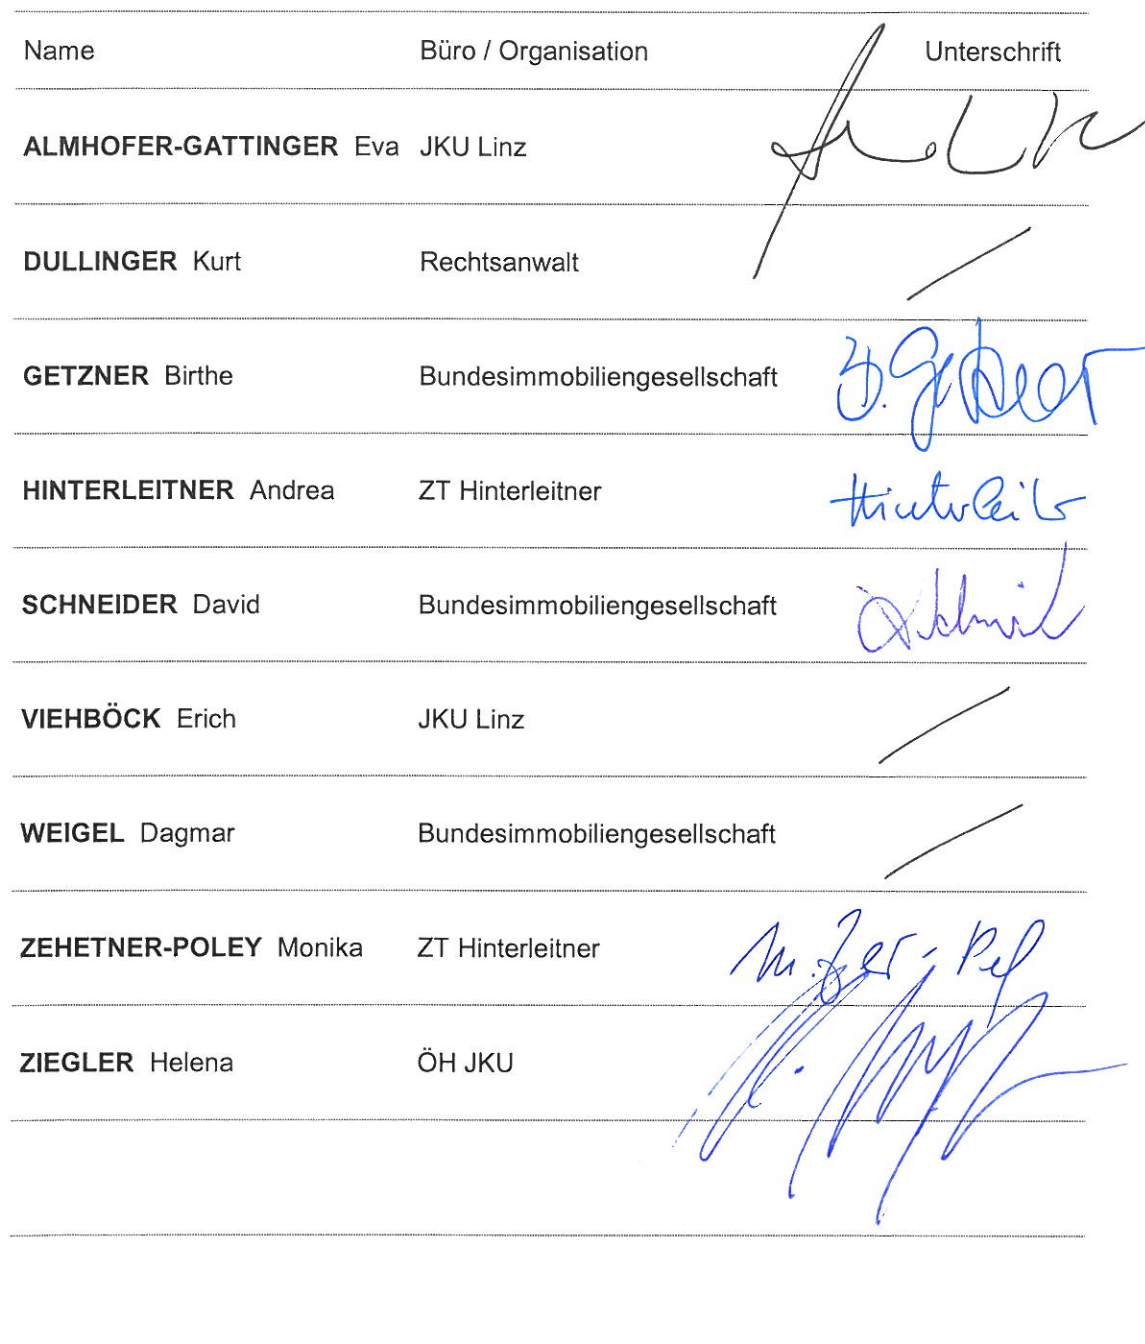 Name Büro / Organisation Unterschrift
ALMHOFER-GATTINGER Eva JKU Linz
DULLINGER Kurt Rechtsanwalt
GETZNER Birthe Bundesimmobiliengesellschaft B. Getzner
HINTERLEITNER Andrea ZT Hinterleitner Hinterleitner
SCHNEIDER David Bundesimmobiliengesellschaft
VIEHBÖCK Erich JKU Linz
WEIGEL Dagmar Bundesimmobiliengesellschaft
ZEHETNER-POLEY Monika ZT Hinterleitner
ZIEGLER Helena ÖH JKU